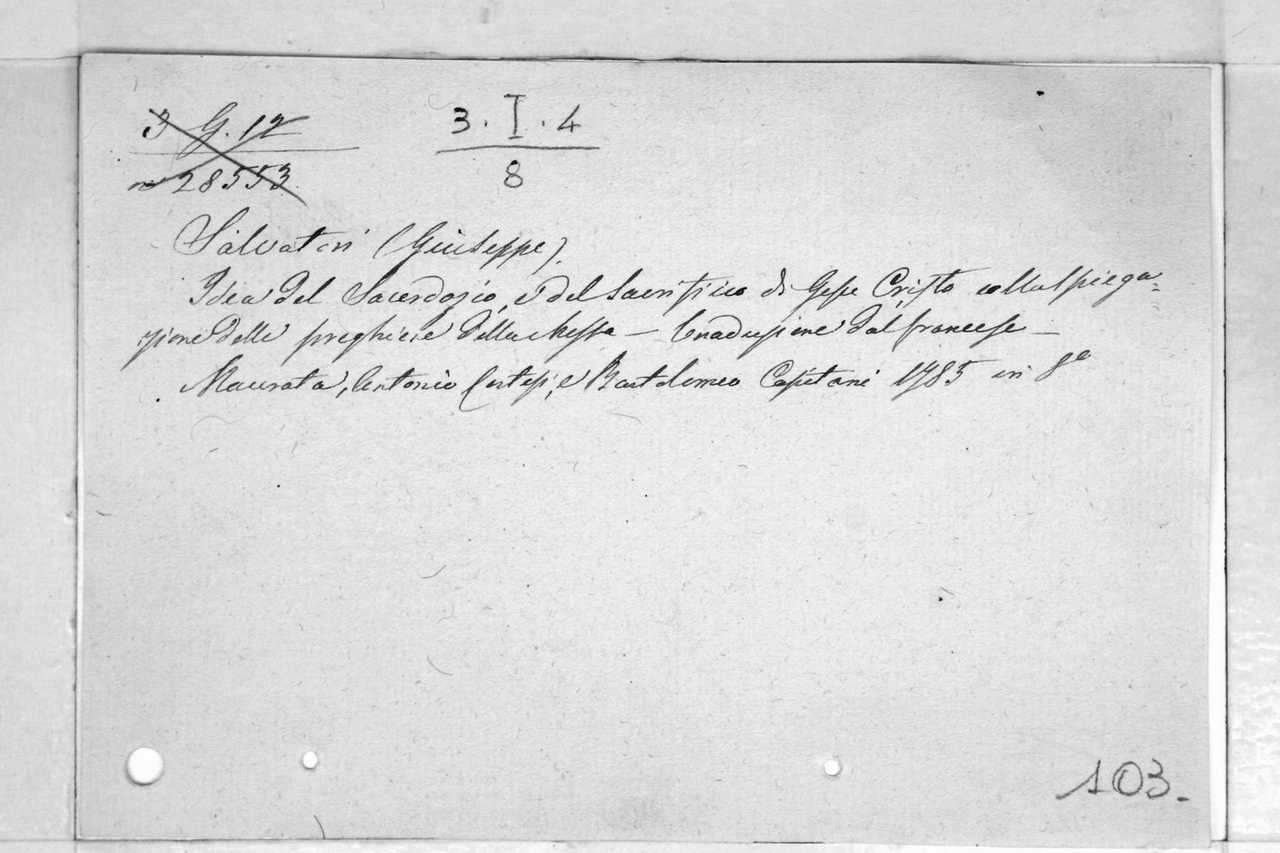 3 G. 12
nº 28553
3. I. 4
8
Salvatori (Giuseppe).
Idea del Sacerdozio, e del Sacrifizio di Gesu Cristo colla spiega=
zione delle preghiere della Messa — traduzione dal francese —
Macerata, Antonio Cortesi, e Bartolomeo Capitani 1785 in 8º
103.